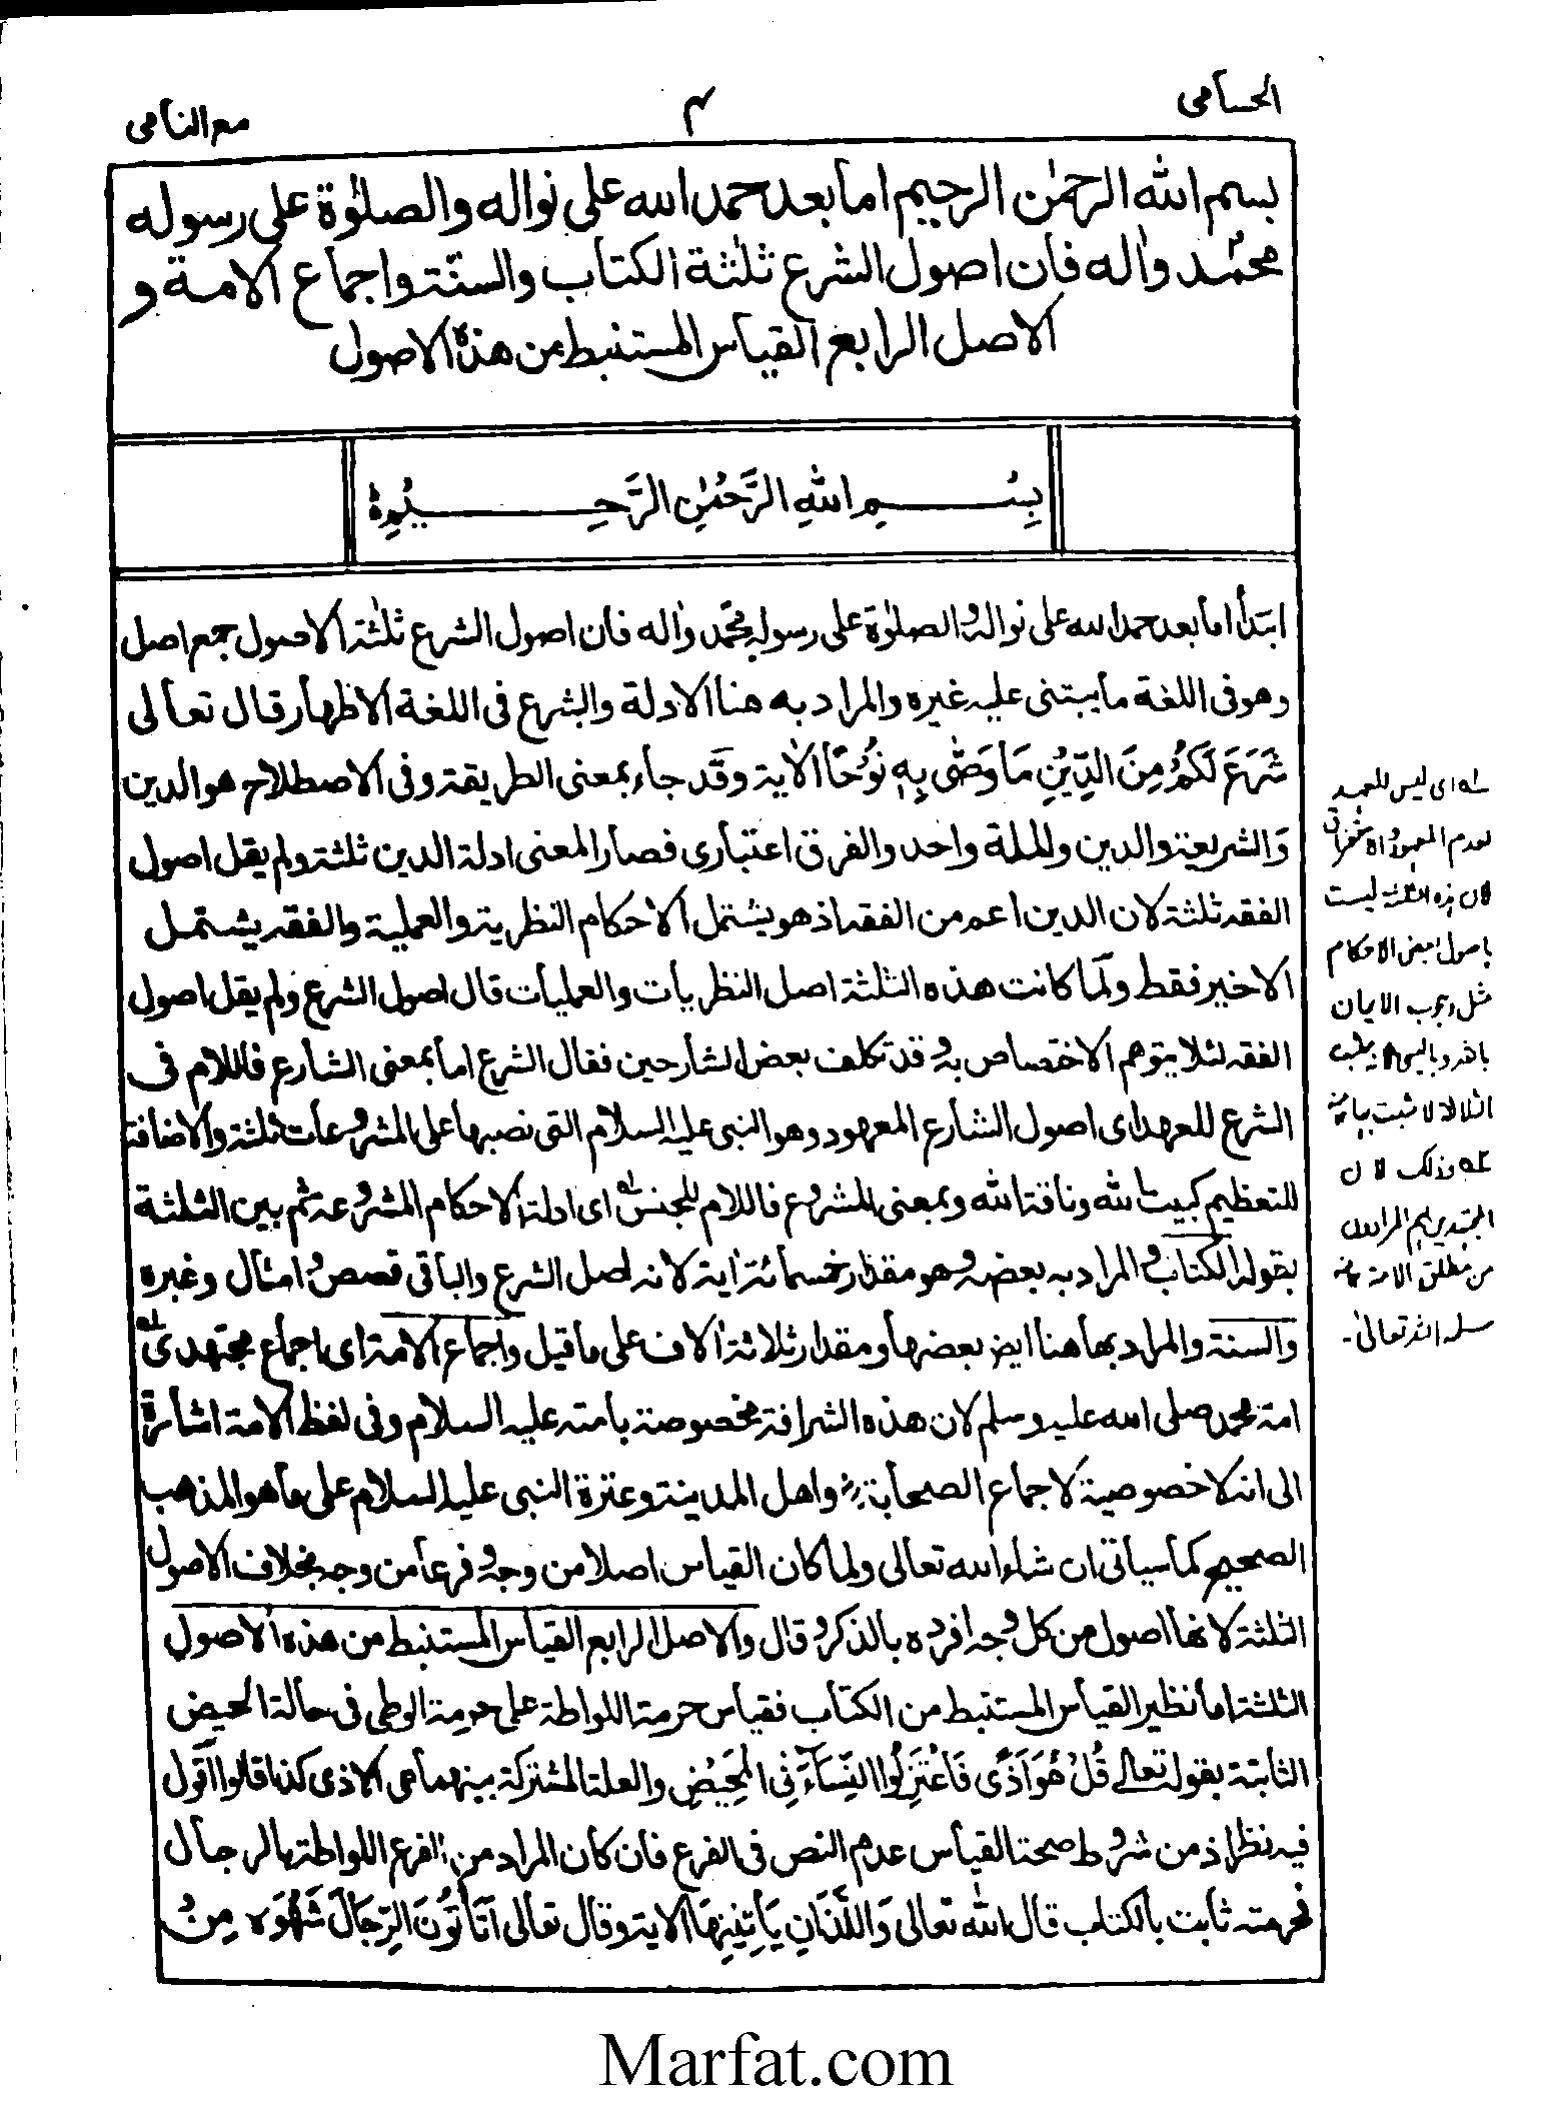 الحسامی
۴
مع النامی
بسم الله الرحمٰن الرحیم اما بعد حمد الله علی نواله والصلوٰة علی رسوله
محمّد واٰله فان اصول الشرع ثلٰثة الکتاب والسنّة واجماع الامة و
الاصل الرابع القیاس المستنبط من هذه الاصول
بِسْمِ اللهِ الرَّحْمٰنِ الرَّحِیْمِ
ابتدأ اما بعد حمد الله علی نواله والصلوٰة علی رسوله محمّد واٰله فان اصول الشرع ثلٰثة الاصول جمع اصل
وهو فی اللغة ما یبتنی علیه غیره والمراد به هنا الادلة والشرع فی اللغة الاظهار قال تعالی
شَرَعَ لَكُمْ مِنَ الدِّیْنِ مَا وَصّٰی بِهٖ نُوْحًا الاٰیة وقد جاء بمعنی الطریقة وفی الاصطلاح هو الدین
والشریعة والدین والملة واحد والفرق اعتباری فصار المعنی ادلة الدین ثلثة ولم یقل اصول
الفقه ثلثة لان الدین اعم من الفقه اذ هو یشتمل الاحکام النظریة والعملیة والفقه یشتمل
الاخیر فقط ولما کانت هذه الثلثة اصل النظریات والعملیات قال اصول الشرع ولم یقل اصول
الفقه لئلا یتوهم الاختصاص به وقد تکلف بعض الشارحین فقال الشرع اما بمعنی الشارع فاللام فی
الشرع للعهد ای اصول الشارع المعهود وهو النبی علیه السلام التی نصبها علی المشروعات ثلثة والاضافة
للتعظیم کبیت الله وناقة الله وبمعنی المشروع فاللام للجنس ای ادلة الاحکام المشروعة ثم بین الثلثة
بقوله الکتاب والمراد به بعضه وهو مقدار خمسمائة اٰیة لانه اصل الشرع والباقی قصص وامثال وغیره
والسنة والمراد بها هنا ایض بعضها ومقدار ثلاثة اٰلاف علی ما قیل واجماع الامة ای اجماع مجتهدی
امة محمد صلی الله علیه وسلم لان هذه الشرافة مخصوصة بامته علیه السلام وفی لفظ الامة اشارة
الی انه لا خصوصیة لاجماع الصحابة واهل المدینة وعترة النبی علیه السلام علی ما هو المذهب
الصحیح کما سیاتی ان شاء الله تعالی ولما کان القیاس اصلا من وجه وفرعا من وجه بخلاف الاصول
الثلثة لانها اصول من کل وجه افرده بالذکر وقال والاصل الرابع القیاس المستنبط من هذه الاصول
الثلثة اما نظیر القیاس المستنبط من الکتاب فقیاس حرمة اللواطة علی حرمة الوطی فی حالة الحیض
الثابتة بقوله تعالی قُلْ هُوَ اَذًی فَاعْتَزِلُوا النِّسَآءَ فِی الْمَحِیْضِ والعلة المشترکة بینهما هی الاذی کذا قالوا اقول
فیه نظر اذ من شروط صحة القیاس عدم النص فی الفرع فان کان المراد من الفرع اللواطة بالرجال
فحرمته ثابت بالکتاب قال الله تعالی وَالَّذَانِ یَأْتِیٰنِهَا الاٰیة وقال تعالی اَتَأْتُوْنَ الرِّجَالَ شَهْوَة مِنْ
له ای لیس للعهد
لعدم المعهود
لان هذه الثلثة لیست
باصول بعض الاحکام
مثل وجوب الایمان
بالله وبالنبی
الثلاثة لا تثبت بها
ته وذلک لان
المجتهدین هم المرادون
من مطلق الامة
سلمه الله تعالیٰ۔
Marfat.com